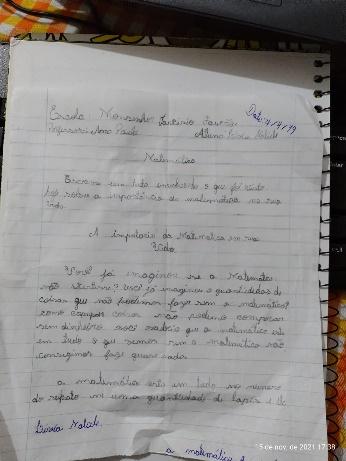 Escola: Monsenhor
Data:
Professora: Ana Paula Aluna: Natale
Matemática
Escreva um texto envolvendo o que foi
sobre a importância da matemática na sua
vida.
A importacia da Matematica em sua
Vida
Você já imaginou se a Matematica
não existisse? Você já imaginou a quantidades de
coisas que não podemos fazer sem a matematica?
como comprar coisas não podemos comprar
sem dinheiro você sabia que a matematica está
em tudo e que sem a matematica não
conseguimos faze quase nada.
a matemática está em tudo no numero
do sapato em uma quantidade de lapis e de
Natale.
a matemática
5 de nov. de 2021 17:38